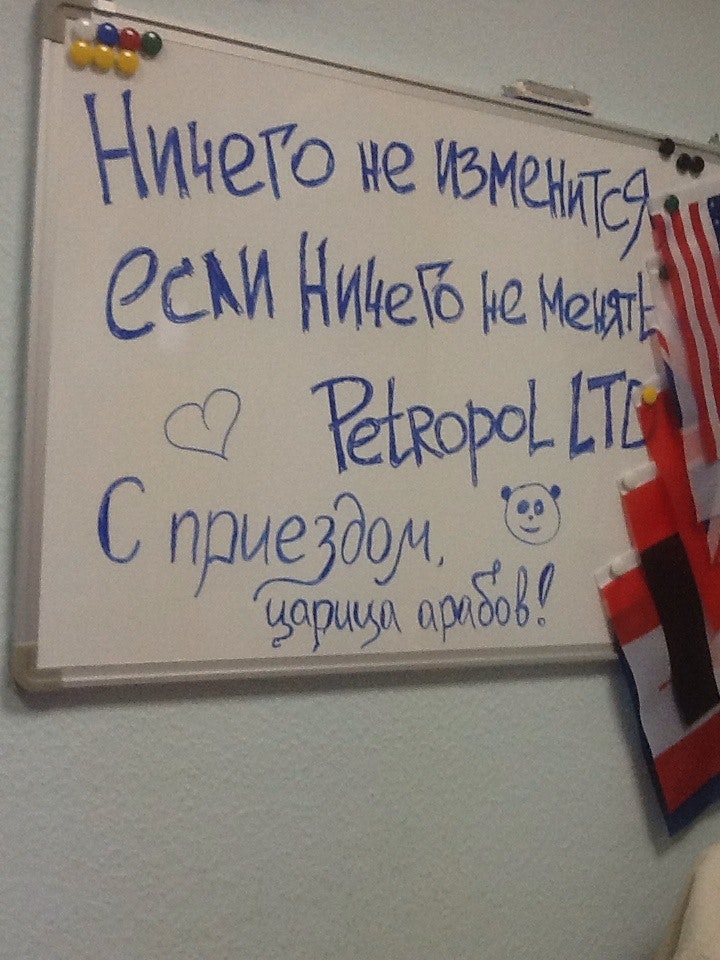 Ничего не изменится
если Ничего не менять
Petropol LTD
С приездом,
царица арабов!